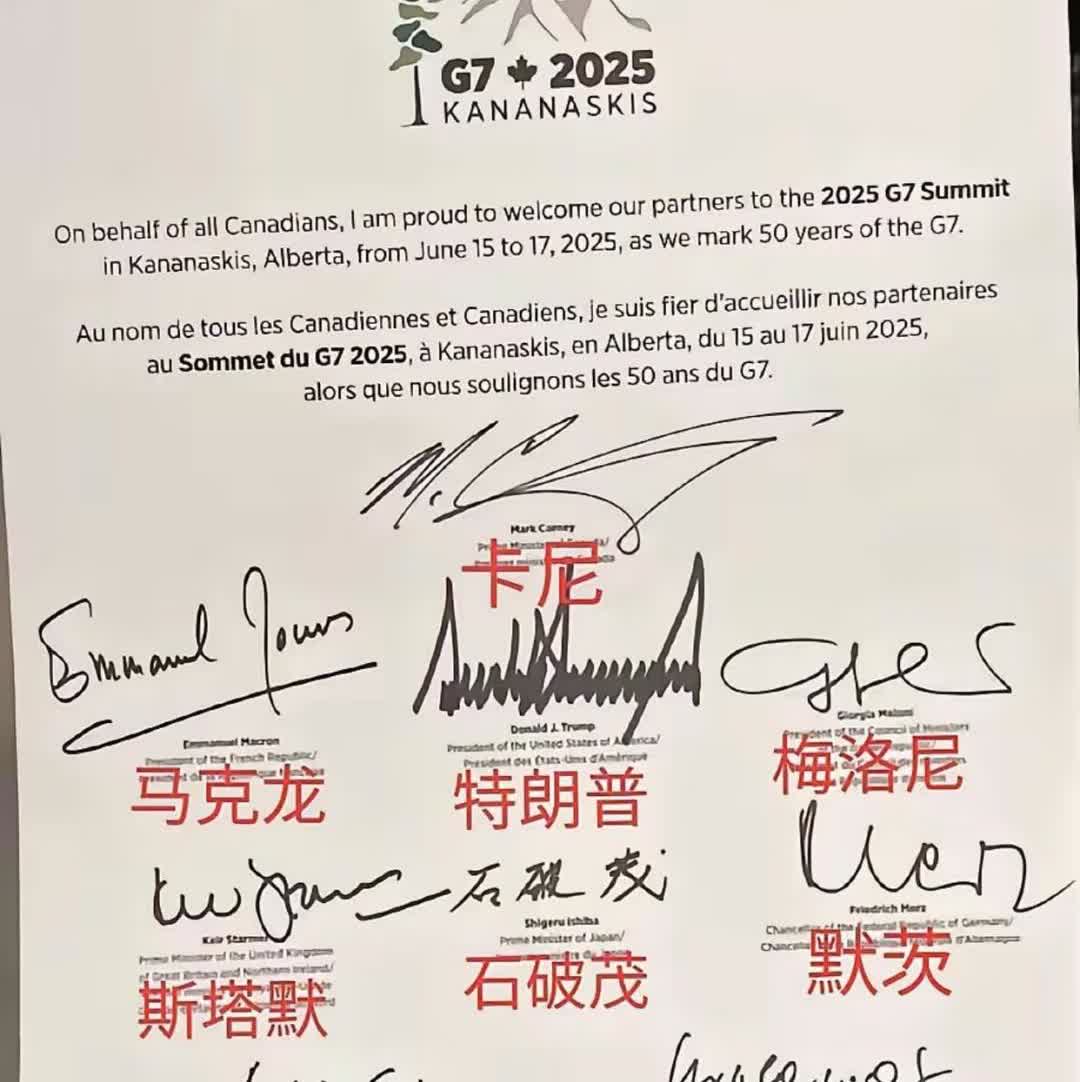 G7 2025
KANANASKIS
On behalf of all Canadians, I am proud to welcome our partners to the 2025 G7 Summit
in Kananaskis, Alberta, from June 15 to 17, 2025, as we mark 50 years of the G7.
Au nom de tous les Canadiennes et Canadiens, je suis fier d'accueillir nos partenaires
au Sommet du G7 2025, à Kananaskis, en Alberta, du 15 au 17 juin 2025,
alors que nous soulignons les 50 ans du G7.
M. C
Mark Carney
卡尼
Emmanuel
Emmanuel Macron
President of the French Republic/
马克龙
Donald J. Trump
President of the United States of America/
Président des États-Unis d'Amérique
特朗普
Giorgia Meloni
President of the Council of Ministers
梅洛尼
Keir Starmer
Prime Minister of the United Kingdom
of Great Britain and Northern Ireland/
斯塔默
石破茂
Shigeru Ishiba
Prime Minister of Japan/
石破茂
Merz
Friedrich Merz
Chancellor of the Federal Republic of Germany/
默茨